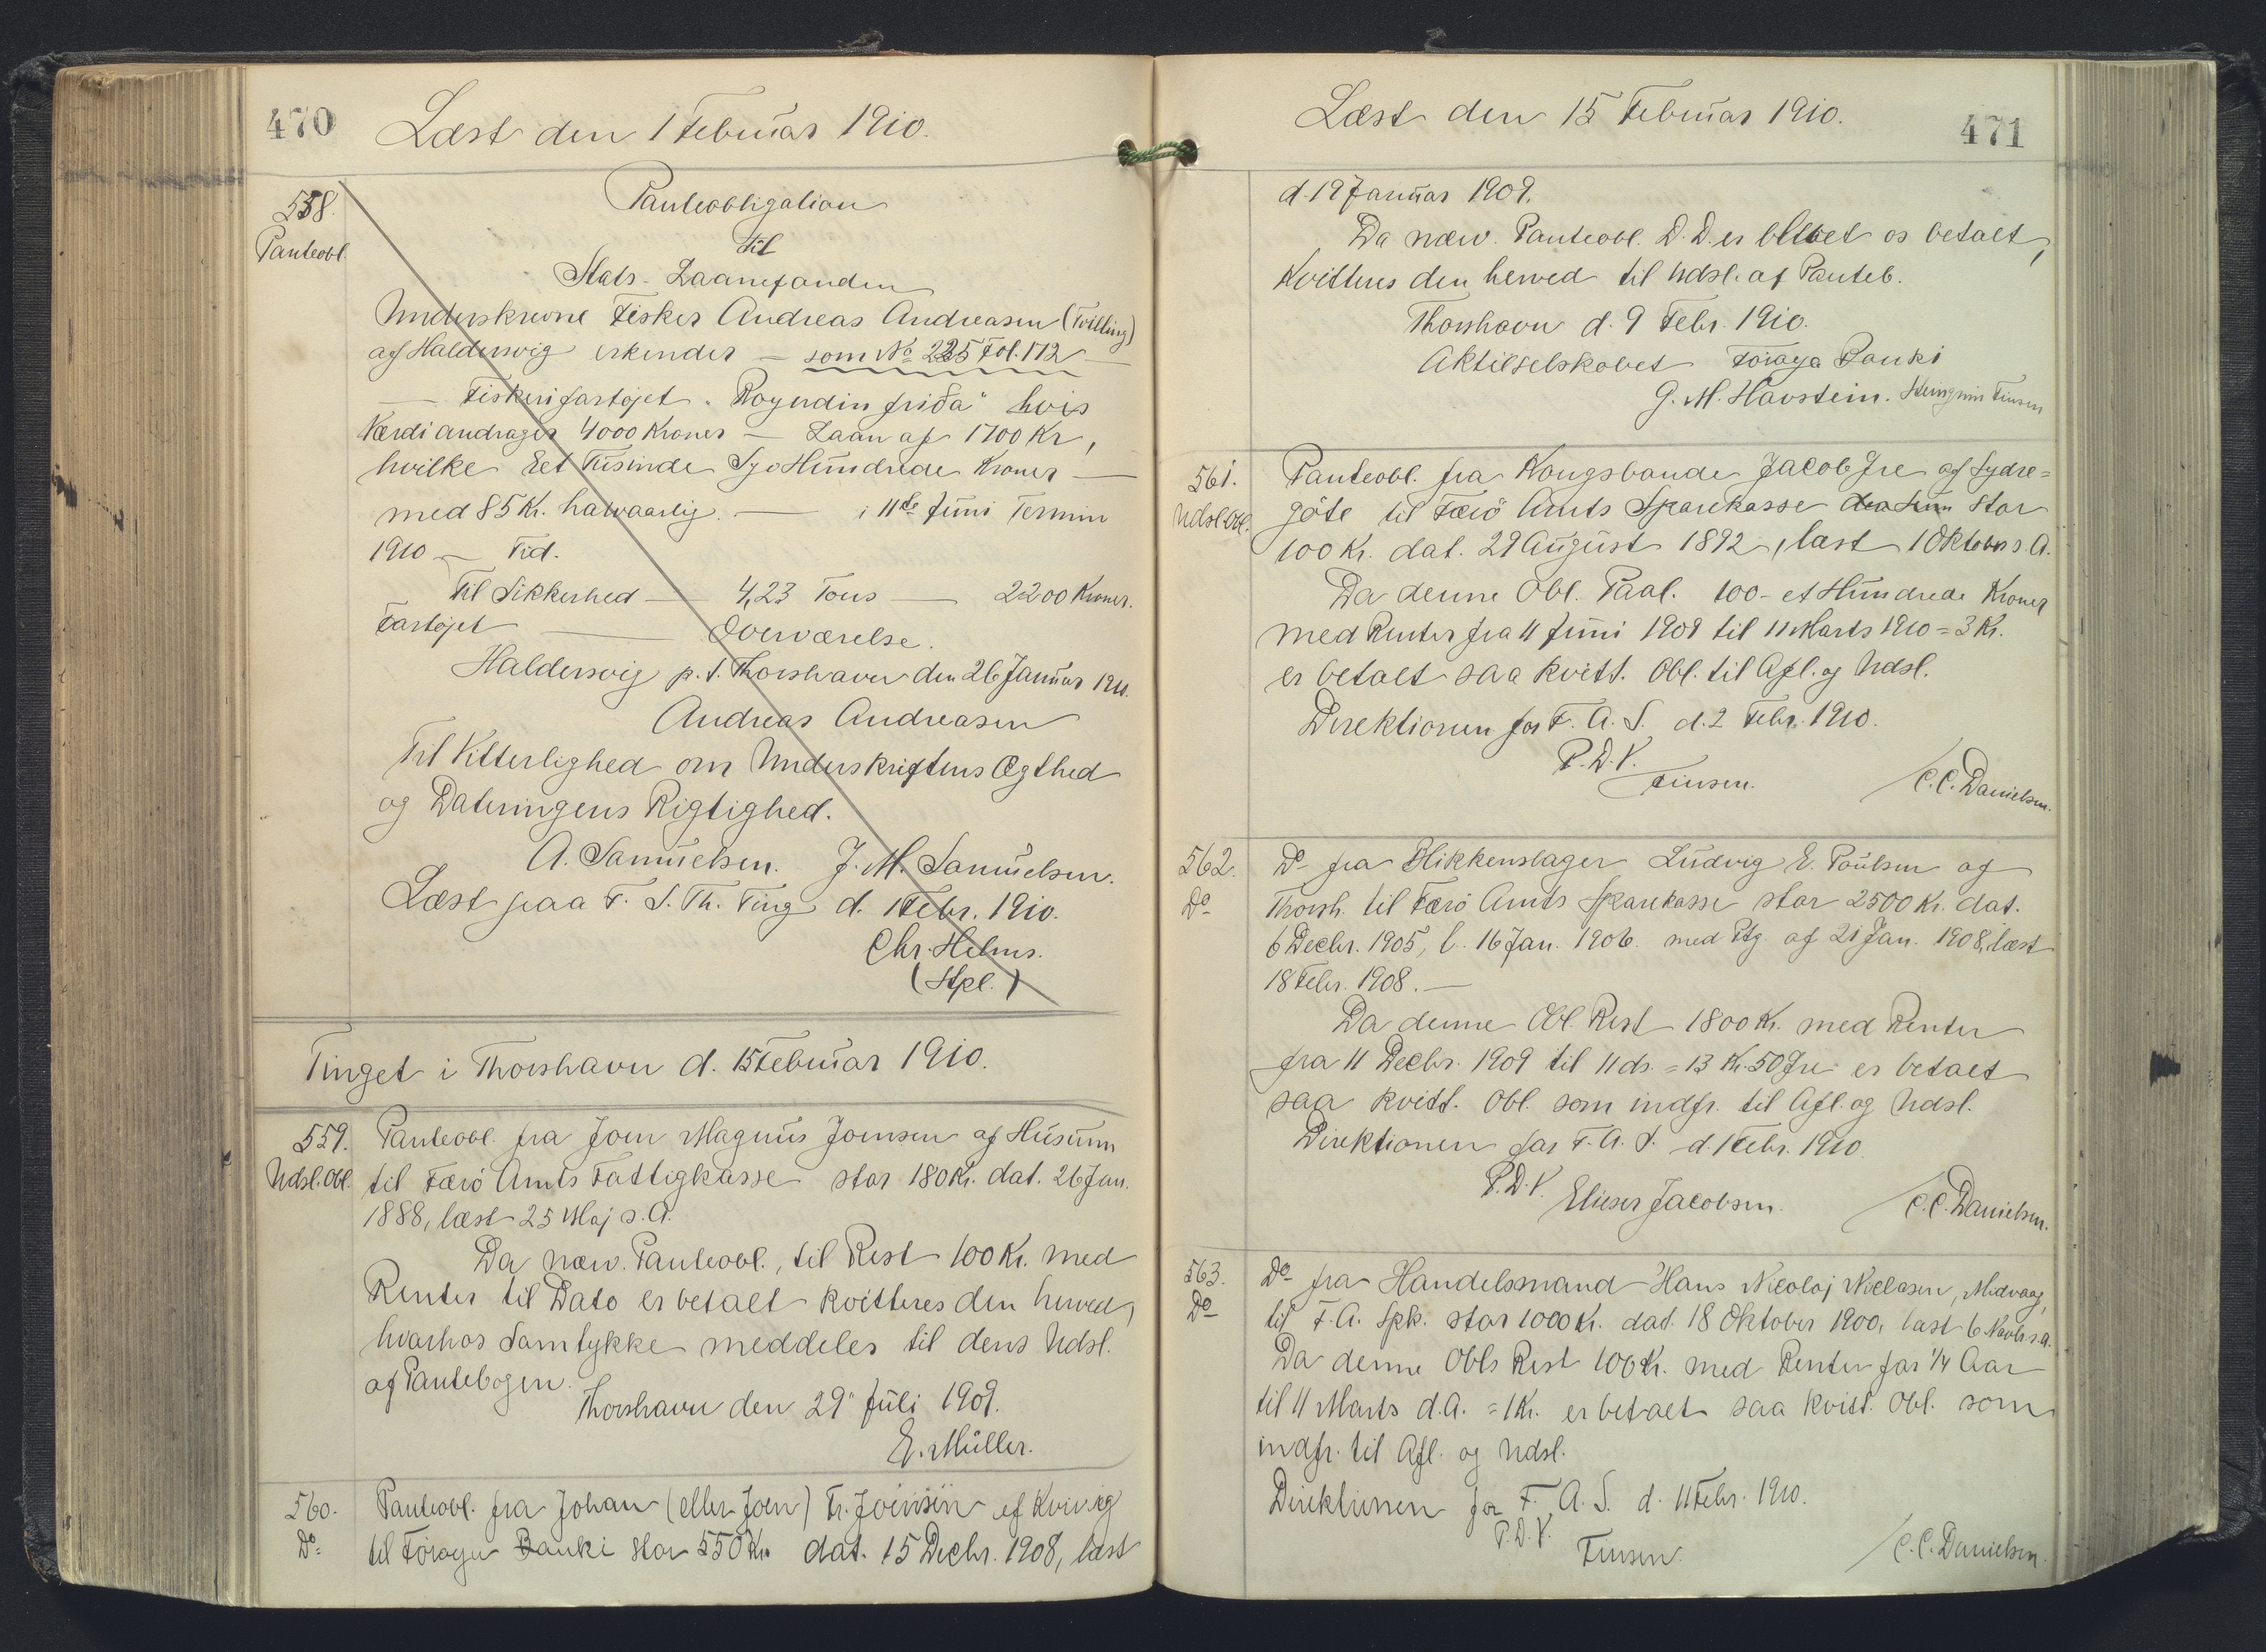 470
Læst den 1 Februar 1910.
558.
Panteobl.
Panteobligation
til
Stats-Laanefonden
Underskrevne Fisker Andreas Andreasen (Tvilling)
af Haldersvig erkender — som No 225 Fol. 172 —
— Fiskerifartøjet "Royndin friða" hvis
Værdi andrager 4000 Kroner — Laan af 1700 Kr,
hvilke Eet Tusinde Syv Hundrede Kroner —
med 85 Kr. halvaarlig. — i 11te Juni Termin
1910 — Tid.
Til Sikkerhed — 4,23 Tons — 2200 Kroner.
Fartøjet — Overværelse.
Haldersvig p.t. Thorshavn den 26 Januar 1910.
Andreas Andreasen
Til Vitterlighed om Underskriftens Ægthed
og Dateringens Rigtighed.
A. Samuelsen. J. M. Samuelsen.
Læst paa F. S. Th. Ting d. 1 Febr. 1910.
Chr. Helms.
(Stpl.)
Tinget i Thorshavn d. 15 Februar 1910.
559.
Udsl. Obl.
Panteobl. fra Joen Magnus Joensen af Husum
til Færö Amts Fattigkasse stor 180 Kr. dat. 26 Jan.
1888, læst 25 Maj s. A.
Da næv. Panteobl., til Rest 100 Kr. med
Renter til Dato er betalt kvitteres den herved,
hvorhos Samtykke meddeles til dens Udsl.
af Pantebogen.
Thorshavn den 29 Juli 1909.
E. Müller.
560.
Do
Panteobl. fra Johan (eller Joen) Fr. Joensen af Kvivig
til Föroya Banki stor 550 Kr. dat. 15 Decbr. 1908, læst
Læst den 15 Februar 1910.
471
d. 19 Januar 1909.
Da næv. Panteobl. D. D. er blevet os betalt,
kvitteres den herved til Udsl. af Panteb.
Thorshavn d. 9 Febr. 1910.
Aktieselskabet Föroya Banki
G. M. Havstein. Steingrim Finsen
561.
Udsl. Obl.
Panteobl. fra Kongsbonde Jacob Joe af Sydre=
göte til Færö Amts Sparekasse stor
100 Kr. dat. 29 August 1892, læst 1 Oktober s. A.
Da denne Obl. Paal. 100 - et Hundrede Kroner
med Renter fra 11 Juni 1909 til 11 Marts 1910 = 3 Kr.
er betalt saa kvitt. Obl. til Afl. og Udsl.
Direktionen for F. A. S. d. 2 Febr. 1910.
P. D. V.
Finsen. / C. C. Danielsen.
562.
Do
Do fra Blikkenslager Ludvig E. Poulsen af
Thorsh. til Færö Amts Sparekasse stor 2500 Kr. dat.
6 Decbr. 1905, l. 16 Jan. 1906 med Ptg. af 21 Jan. 1908, læst
18 Febr. 1908. —
Da denne Obl. Rest 1800 Kr. med Renter
fra 11 Decbr. 1909 til 11 ds. = 13 Kr. 50 Øre er betalt
saa kvitt. Obl. som indfr. til Afl. og Udsl.
Direktionen for F. A. S. d. 1 Febr. 1910.
P. D. V.
Elieser Jacobsen. / C. C. Danielsen.
563.
Do
Do fra Handelsmand Hans Nicolaj Niclasen, Midvaag,
til F. A. Spk. stor 1000 Kr. dat. 18 Oktober 1900, læst 6 Novbr. s. A.
Da denne Obls Rest 100 Kr. med Renter for 1/4 Aar
til 11 Marts d. A. = 1 Kr. er betalt saa kvitt. Obl. som
indfr. til Afl. og Udsl.
Direktionen for F. A. S. d. 11 Febr. 1910.
P. D. V.
Finsen. / C. C. Danielsen.